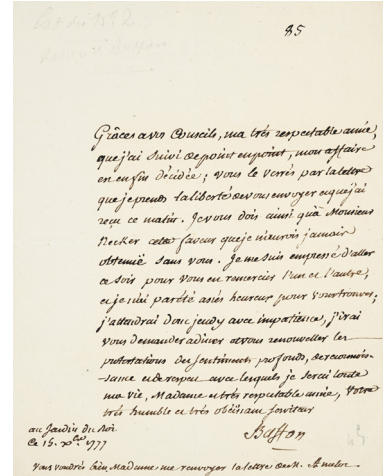 85
Grâces a vos Conseils, ma très respectable amie,
que j'ai suivi de point en point, mon affaire
en enfin décidée; vous le verrés par la lettre
que je prends la liberté de vous envoyer et que j'ai
reçu ce matin. Je vous dois ainsi qu'à Monsieur
Necker cette faveur que je n'aurois jamais
obtenüe sans vous. Je me suis empressé d'aller
ce soir pour vous en remercier l'un et l'autre,
et je n'ai pas été assés heureux pour vous trouver,
j'attendrai donc jeudy avec impatience, j'irai
vous demander a diner et vous renouveller les
protestations des sentiments profonds, de reconnois-
sance et de respect avec lesquels je serai toute
ma vie, Madame et très respectable amie, Votre
très humble et très obeissant serviteur
Buffon
au Jardin du Roi
ce 15. Xbre 1777
Vous voudrés bien, Madame, me renvoyer la lettre de M.